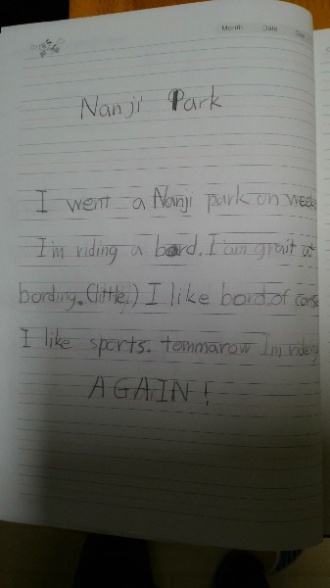 Month Date
Nanji Park
I went a Nanji park on week
I'm riding a bord. I am grait at
bording. (little) I like bord. of corse
I like sports. tommarow I'm riding
AGAIN!